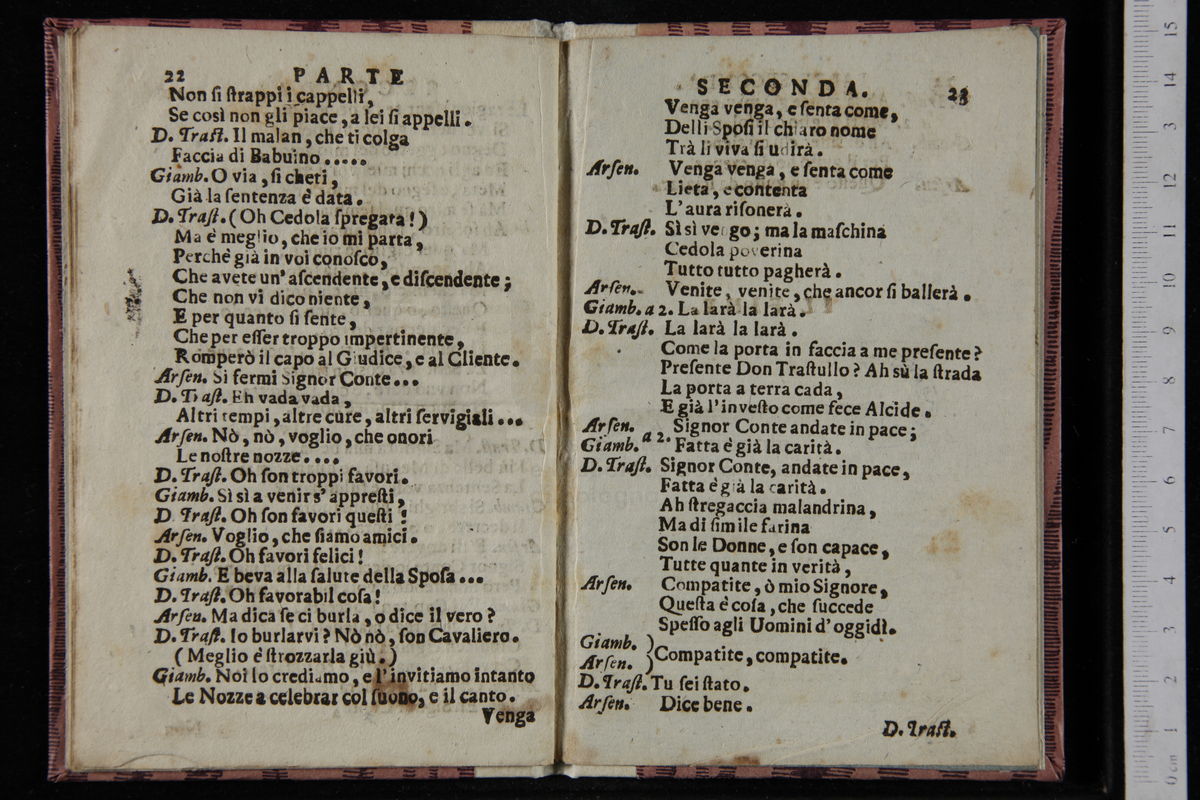 22 PARTE
Non ſi ſtrappi i cappelli,
Se così non gli piace, a lei ſi appelli.
D. Traſt. Il malan, che ti colga
Faccia di Babuino.....
Giamb. O via, ſi cheti,
Già la ſentenza è data.
D. Traſt. (Oh Cedola ſpregata!)
Ma è meglio, che io mi parta,
Perchè già in voi conoſco,
Che avete un' aſcendente, e diſcendente;
Che non vi dico niente,
E per quanto ſi ſente,
Che per eſſer troppo impertinente,
Romperò il capo al Giudice, e al Cliente.
Arſen. Si fermi Signor Conte...
D. Traſt. Eh vada vada,
Altri tempi, altre cure, altri ſervigiali...
Arſen. Nò, nò, voglio, che onori
Le noſtre nozze....
D. Traſt. Oh ſon troppi favori.
Giamb. Sì sì a venir s' appreſti,
D. Traſt. Oh ſon favori queſti!
Arſen. Voglio, che ſiamo amici.
D. Traſt. Oh favori felici!
Giamb. E beva alla ſalute della Spoſa...
D. Traſt. Oh favorabil coſa!
Arſen. Ma dica ſe ci burla, o dice il vero?
D. Traſt. Io burlarvi? Nò nò, ſon Cavaliero.
(Meglio è ſtrozzarla giù.)
Giamb. Noi lo crediamo, e l' invitiamo intanto
Le Nozze a celebrar col ſuono, e il canto.
Venga
SECONDA. 23
Venga venga, e ſenta come,
Delli Spoſi il chiaro nome
Trà li viva ſi udirà.
Arſen. Venga venga, e ſenta come
Lieta, e contenta
L' aura riſonerà.
D. Traſt. Sì sì vengo; ma la maſchina
Cedola poverina
Tutto tutto pagherà.
Arſen. Venite, venite, che ancor ſi ballerà.
Giamb. a 2. La larà la larà.
D. Traſt. La larà la larà.
Come la porta in faccia a me preſente?
Preſente Don Traſtullo? Ah sù la ſtrada
La porta a terra cada,
E già l' inveſto come fece Alcide.
Arſen. Signor Conte andate in pace;
Giamb. a 2. Fatta è già la carità.
D. Traſt. Signor Conte, andate in pace,
Fatta è già la carità.
Ah ſtregaccia malandrina,
Ma di ſimile farina
Son le Donne, e ſon capace,
Tutte quante in verità,
Arſen. Compatite, ò mio Signore,
Queſta è coſa, che ſuccede
Speſſo agli Uomini d' oggidì.
Giamb. }
Arſen. } Compatite, compatite.
D. Traſt. Tu ſei ſtato.
Arſen. Dice bene.
D. Traſt.